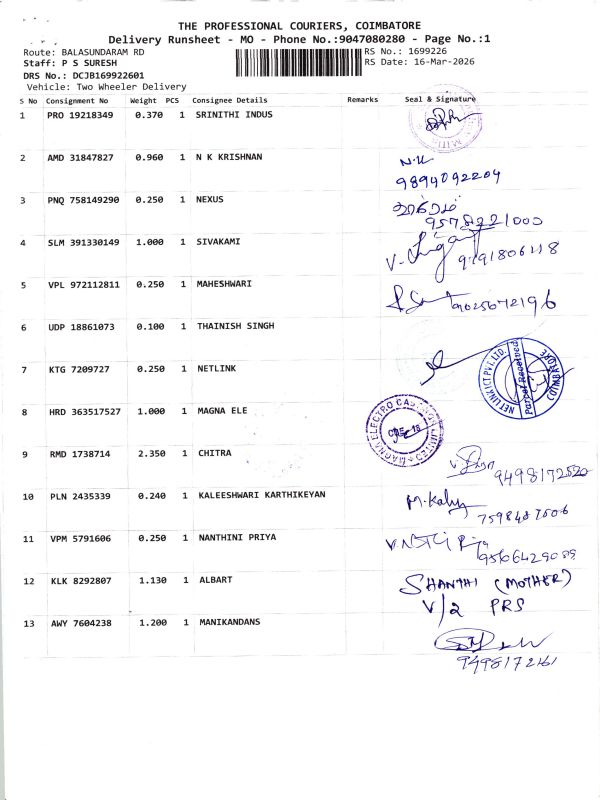 THE PROFESSIONAL COURIERS, COIMBATORE
Delivery Runsheet - MO - Phone No.:9047080280 - Page No.:1
Route: BALASUNDARAM RD
RS No.: 1699226
Staff: P S SURESH
RS Date: 16-Mar-2026
DRS No.: DCJB169922601
Vehicle: Two Wheeler Delivery
S No Consignment No Weight PCS Consignee Details Remarks Seal & Signature
1 PRO 19218349 0.370 1 SRINITHI INDUS
2 AMD 31847827 0.960 1 N K KRISHNAN N.K
9894092204
3 PNQ 758149290 0.250 1 NEXUS
9578221000
4 SLM 391330149 1.000 1 SIVAKAMI
9791806118
5 VPL 972112811 0.250 1 MAHESHWARI
9025672196
6 UDP 18861073 0.100 1 THAINISH SINGH
7 KTG 7209727 0.250 1 NETLINK
NETLINK ICT PVT. LTD.
Parcel Received
COIMBATORE
8 HRD 363517527 1.000 1 MAGNA ELE
MAGNA ELECTRO CASTINGS LIMITED
9 RMD 1738714 2.350 1 CHITRA
9498172520
10 PLN 2435339 0.240 1 KALEESHWARI KARTHIKEYAN
M.Kaly
7598487506
11 VPM 5791606 0.250 1 NANTHINI PRIYA
9566429089
12 KLK 8292807 1.130 1 ALBART SHANTHI (MOTHER)
V/2 PRS
13 AWY 7604238 1.200 1 MANIKANDANS
9498172161